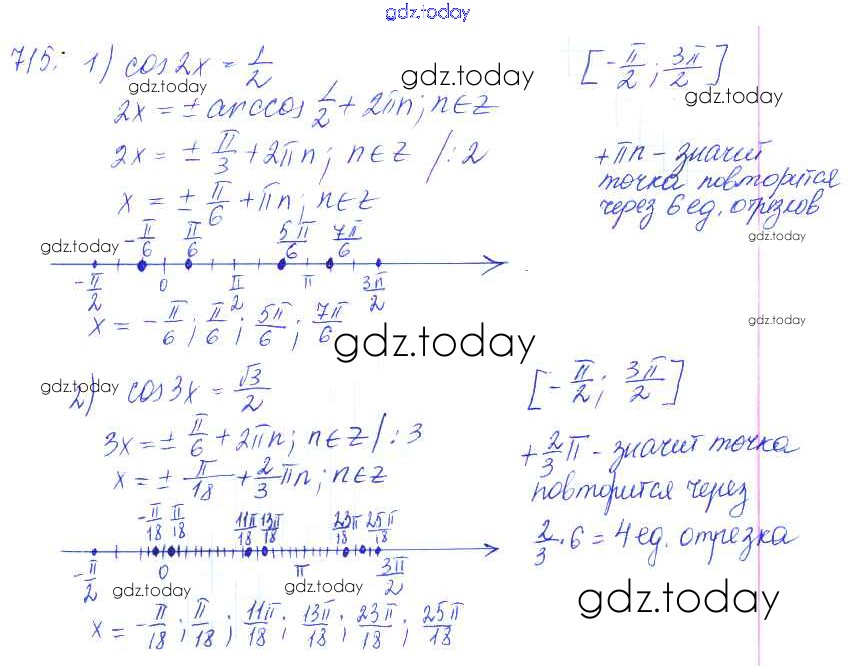 gdz.today
715: 1) cos2x = 1/2 [-π/2; 3π/2]
gdz.today
gdz.today
2x = ± arccos 1/2 + 2πn; n∈Z
2x = ± π/3 + 2πn; n∈Z /:2
+πn - значит
точка повторится
через 6 ед. отрезков
x = ± π/6 + πn; n∈Z
gdz.today
gdz.today
-π/6 π/6 5π/6 7π/6
-π/2 0 π/2 π 3π/2
x = -π/6; π/6; 5π/6; 7π/6
gdz.today
gdz.today
2) cos3x = √3/2 [-π/2; 3π/2]
gdz.today
3x = ± π/6 + 2πn; n∈Z /:3
x = ± π/18 + 2/3 πn; n∈Z
+2/3π - значит точка
повторится через
2/3·6 = 4 ед. отрезка
-π/18 π/18 11π/18 13π/18 23π/18 25π/18
-π/2 0 π 3π/2
gdz.today
gdz.today
gdz.today
x = -π/18; π/18; 11π/18; 13π/18; 23π/18; 25π/18